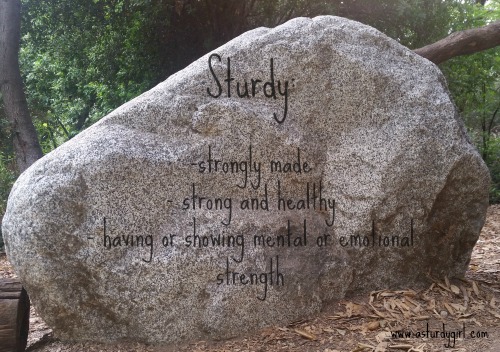 Sturdy:
-strongly made
- strong and healthy
- having or showing mental or emotional
strength
www.asturdygirl.com